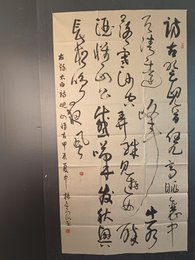 訪古登峴首憑高眺襄中
天清遠峰出水
落寒沙空弄珠見遊女醉
酒懷山公感嘆發秋興
長松鳴夜風
右錄太白詩峴山懷古甲辰夏